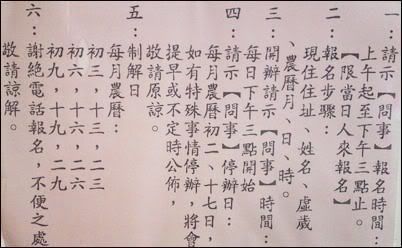 一：請示【問事】報名時間：
上午起至下午三點止。
【限當日人來報名】
二：報名步驟：
現住住址、姓名、虛歲
、農曆月、日、時。
三：開辦請示【問事】時間：
每日下午三點開始
四：請示【問事】停辦日：
每月農曆初二、十七日，
如有特殊事情停辦，將會
提早或不定時公佈，
敬請原諒。
五：制解日
每月農曆：
初三，十三，二三
初六，十六，二六
初九，十九，二九
六：謝絕電話報名，不便之處
敬請諒解。